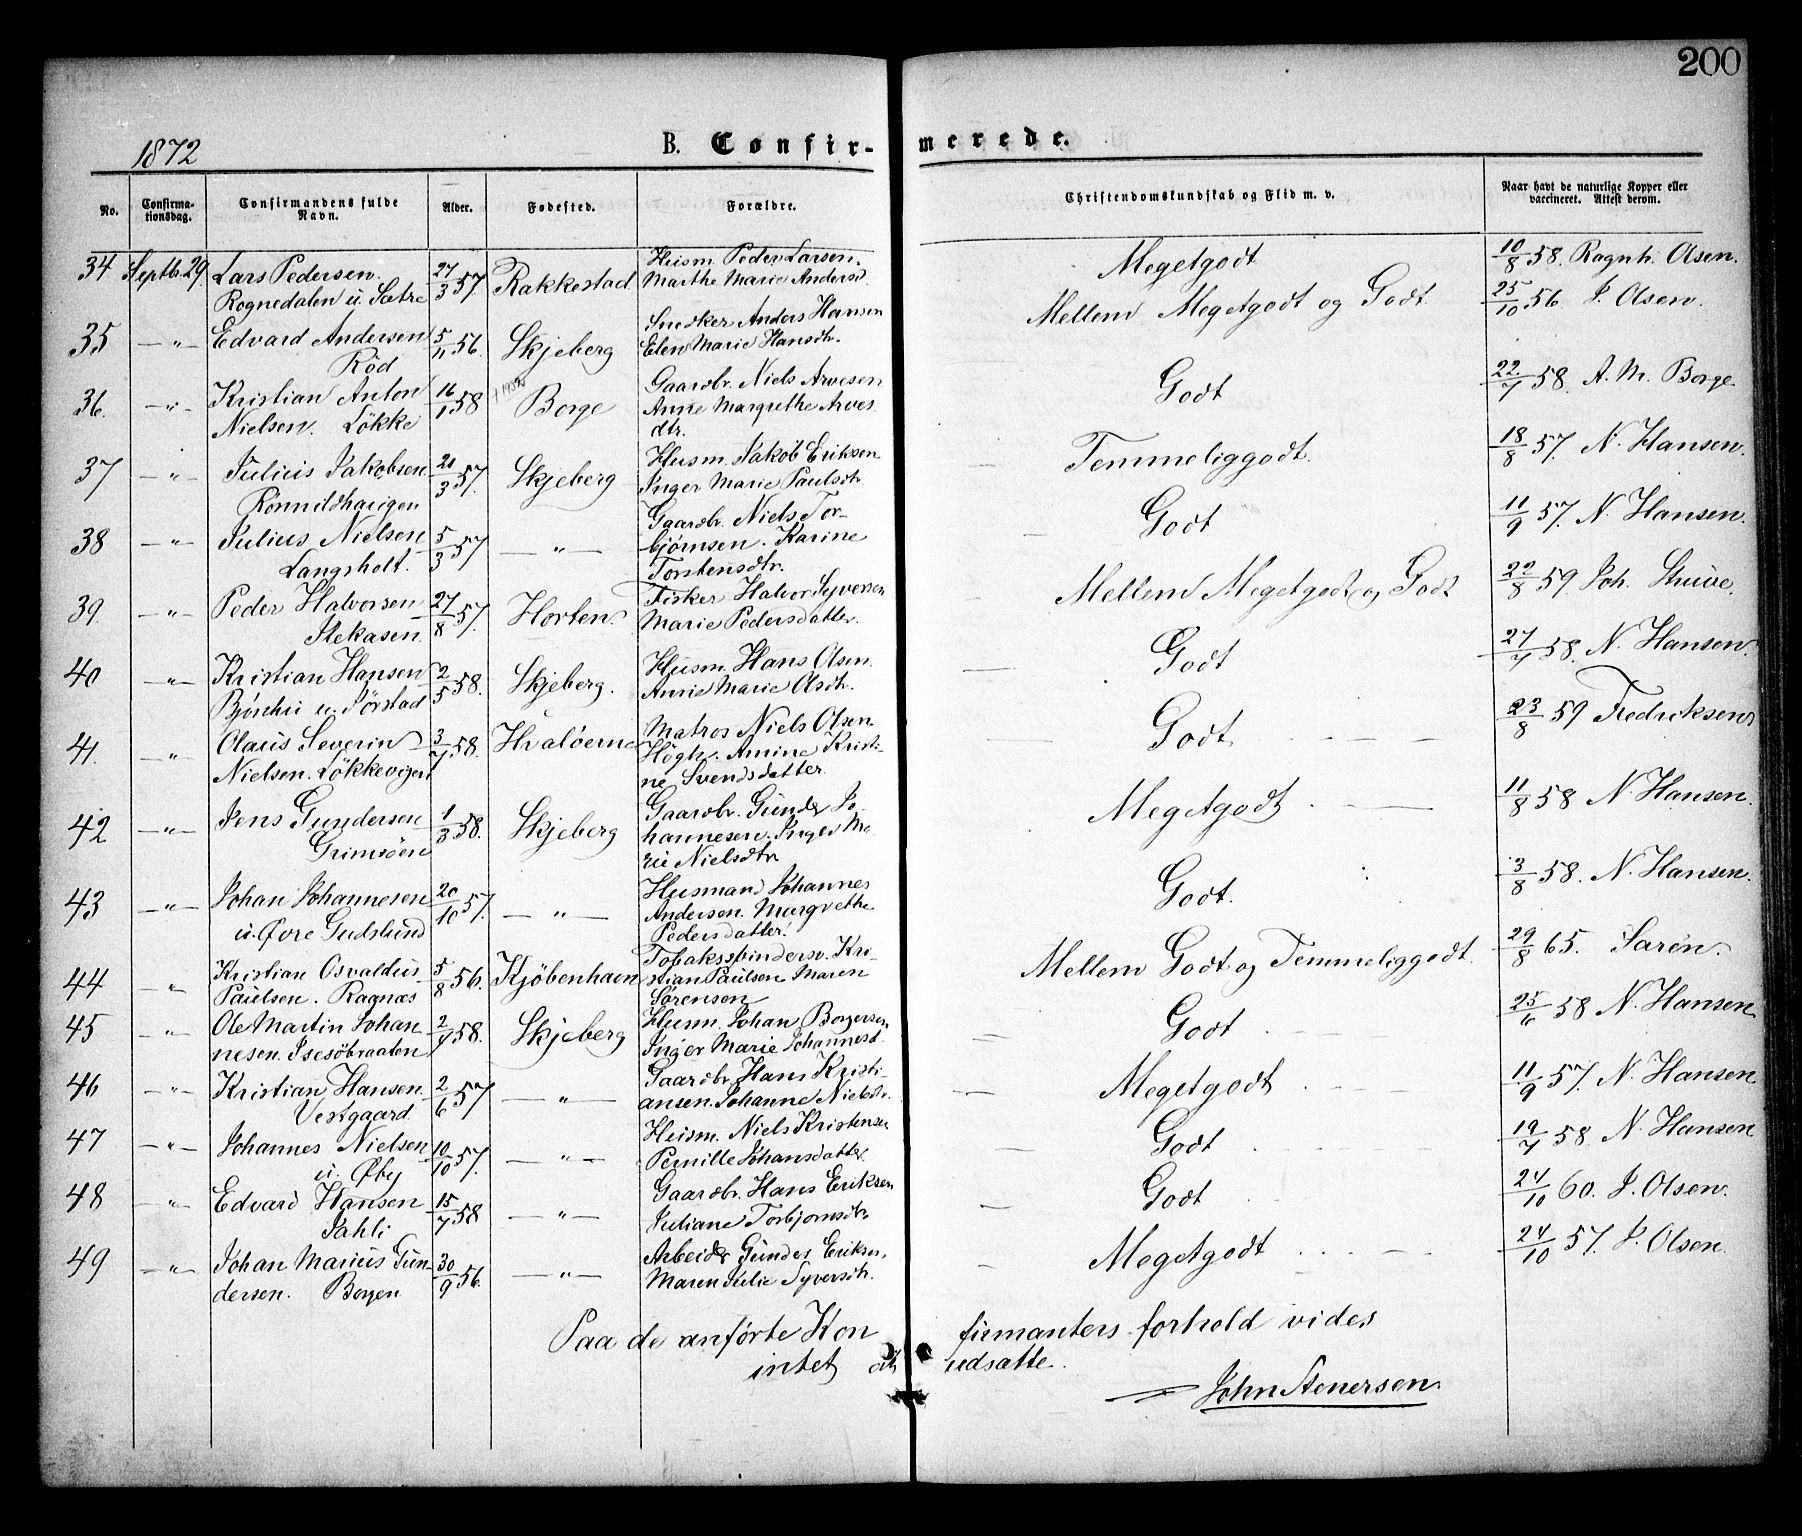 200
1872
B. Confir- merede.
No.
Confirma-
tionsdag.
Confirmandens fulde
Navn.
Alder.
Fødested.
Forældre.
Christendomskundskab og Flid m. v.
Naar havt de naturlige Kopper eller
vaccineret. Attest derom.
34 Septbr. 29. Lars Pedersen 27/3 57 Rakkestad Husm. Peder Larsen. Megetgodt 10/8 58. Ragnh. Olsen.
Rognedalen u. Sætre Marthe Marie Andersd.
35 — " — Edvard Andersen 5/11 56. Skjeberg Snedker Anders Hansen Mellem Megetgodt og Godt 25/10 56 J. Olsen.
Röd Elen Marie Hansdtr.
36. — " — Kristian Anton 16/1 58 Borge Gaardbr. Niels Arvesen Godt 22/7 58. A. M. Borge
Nielsen. Løkke Anne Margrethe Arves
dtr.
37 — " — Julius Jakobsen 20/3 57. Skjeberg Husm. Jakob Eriksen Temmeliggodt. 18/8 57. N. Hansen.
Ronnildhaugen Inger Marie Paulsdtr.
38 — " — Julius Nielsen 5/3 57 — " — Gaardbr. Niels Tor- Godt 11/9 57. N. Hansen.
Langsholt. bjørnsen. Karine
Torstensdtr.
39. — " — Peder Halvorsen 27/8 57. Horten Fisker Halvor Syversen Mellem Megetgodt og Godt 22/8 59 Joh.
Stekasen. Marie Pedersdatter.
40 — " — Kristian Hansen 2/5 58. Skjeberg. Husm. Hans Olsen. Godt 27/7 58. N. Hansen.
u. Jørstad Anne Marie Olsdtr.
41. — " — Olaus Severin 3/7 58. Hvalöerne Matros Niels Olsen Godt 23/8 59 Fredriksen
Nielsen. Løkkevigen Høgh. Amine Kristi-
ne Svendsdatter.
42 — " — Jens Gundersen 1/3 58. Skjeberg Gaardbr. Gunder Jo- Megetgodt 11/8 58 N. Hansen.
Grimsöen hannesen. Inger Ma-
rie Nielsdtr
43 — " — Johan Johannesen 20/10 57. — " — Husmand Johannes Godt. 3/8 58. N. Hansen.
u. Øvre Gudslund Andersen. Margrethe
Pedersdatter.
44 — " — Kristian Osvaldus 5/8 56. Kjöbenhavn Tobaksspindersv. Kri- Mellem Godt og Temmeliggodt. 29/8 65. Saren.
Paulsen. Ragnæs stian Paulsen Maren
Sørensen
45 — " — Ole Martin Johan 2/7 58. Skjeberg Husm. Johan Borgersen Godt 25/6 58 N. Hansen
nesen. Isesöbraaten Inger Marie Johannesd.
46 — " — Kristian Hansen. 2/6 57 — " — Gaardbr. Hans Kristi- Megetgodt 11/9 57. N. Hansen
Vestgaard ansen. Johanne Nielsdtr.
47 — " — Johannes Nielsen 10/10 57. — " — Husm. Niels Kristensen Godt 19/7 58. N. Hansen
u. Øby Pernille Johansdatter.
48 — " — Edvard Hansen 15/7 58 — " — Gaardbr. Hans Eriksen Godt 24/10 60. J. Olsen.
Sahli Juliane Torbjornsdtr.
49 — " — Johan Marius Gun 30/9 56. — " — Arbeider Gunder Eriksen. Megetgodt 24/10 57. J. Olsen.
dersen. Borgen Maren Julie Syversdtr.
Paa de anførte Kon firmanters forhold vides
intet at udsatte.
John Stenersen